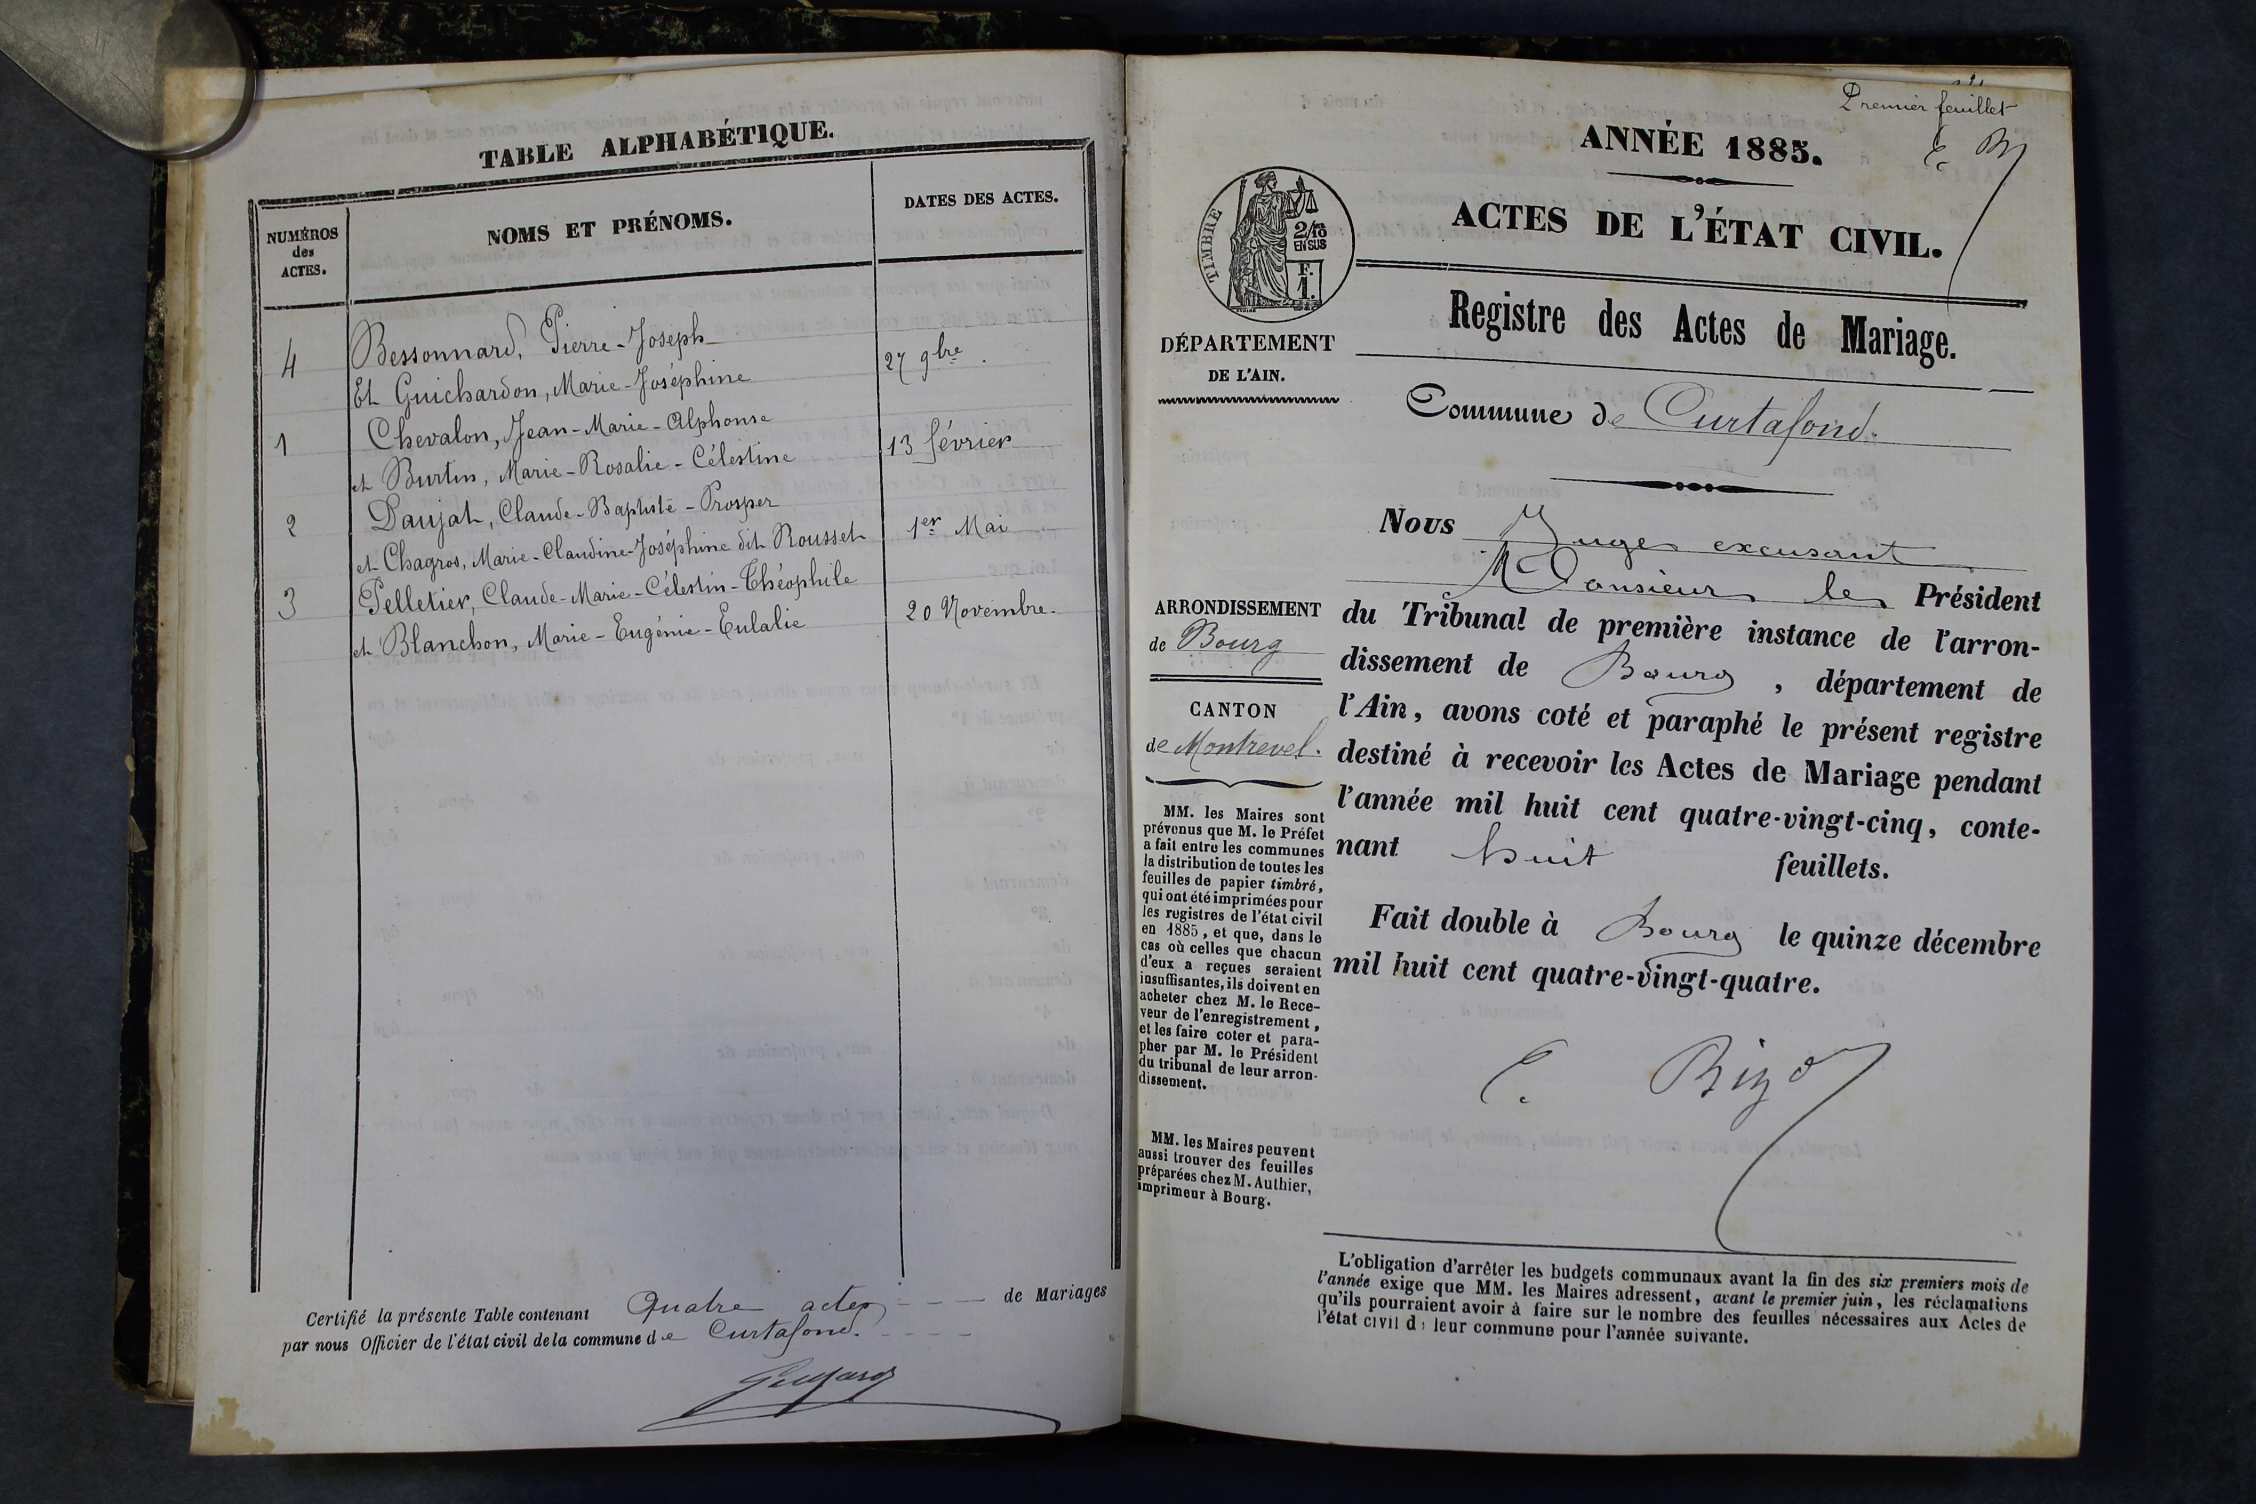 TABLE ALPHABÉTIQUE.
NUMÉROS
des
ACTES.
NOMS ET PRÉNOMS.
DATES DES ACTES.
4 Bessonnard, Pierre-Joseph
Et Guichardon, Marie-Joséphine 27 9bre.
1 Chevalon, Jean-Marie-Alphonse
et Burtin, Marie-Rosalie-Célestine 13 février
2 Daujat, Claude-Baptiste-Prosper
et Chagros, Marie-Claudine-Joséphine dit Rousset 1er Mai
3 Pelletier, Claude-Marie-Célestin-Théophile
et Blanchon, Marie-Eugénie-Eulalie 20 Novembre.
Certifié la présente Table contenant Quatre actes de Mariages
par nous Officier de l'état civil de la commune de Curtafond.
Premier feuillet
ANNÉE 1885.
C. B
ACTES DE L'ÉTAT CIVIL.
TIMBRE
2/10
EN SUS
F.
1.
Registre des Actes de Mariage.
DÉPARTEMENT
DE L'AIN.
Commune de Curtafond.
Nous Juge excusant
Monsieur le Président
du Tribunal de première instance de l'arron-
dissement de Bourg, département de
l'Ain, avons coté et paraphé le présent registre
destiné à recevoir les Actes de Mariage pendant
l'année mil huit cent quatre-vingt-cinq, conte-
nant huit feuillets.
Fait double à Bourg le quinze décembre
mil huit cent quatre-vingt-quatre.
ARRONDISSEMENT
de Bourg
CANTON
de Montrevel.
MM. les Maires sont
prévenus que M. le Préfet
a fait entre les communes
la distribution de toutes les
feuilles de papier timbré,
qui ont été imprimées pour
les registres de l'état civil
en 1885, et que, dans le
cas où celles que chacun
d'eux a reçues seraient
insuffisantes, ils doivent en
acheter chez M. le Rece-
veur de l'enregistrement,
et les faire coter et para-
pher par M. le Président
du tribunal de leur arron-
dissement.
MM. les Maires peuvent
aussi trouver des feuilles
préparées chez M. Authier,
imprimeur à Bourg.
L'obligation d'arrêter les budgets communaux avant la fin des six premiers mois de
l'année exige que MM. les Maires adressent, avant le premier juin, les réclamations
qu'ils pourraient avoir à faire sur le nombre des feuilles nécessaires aux Actes de
l'état civil d leur commune pour l'année suivante.